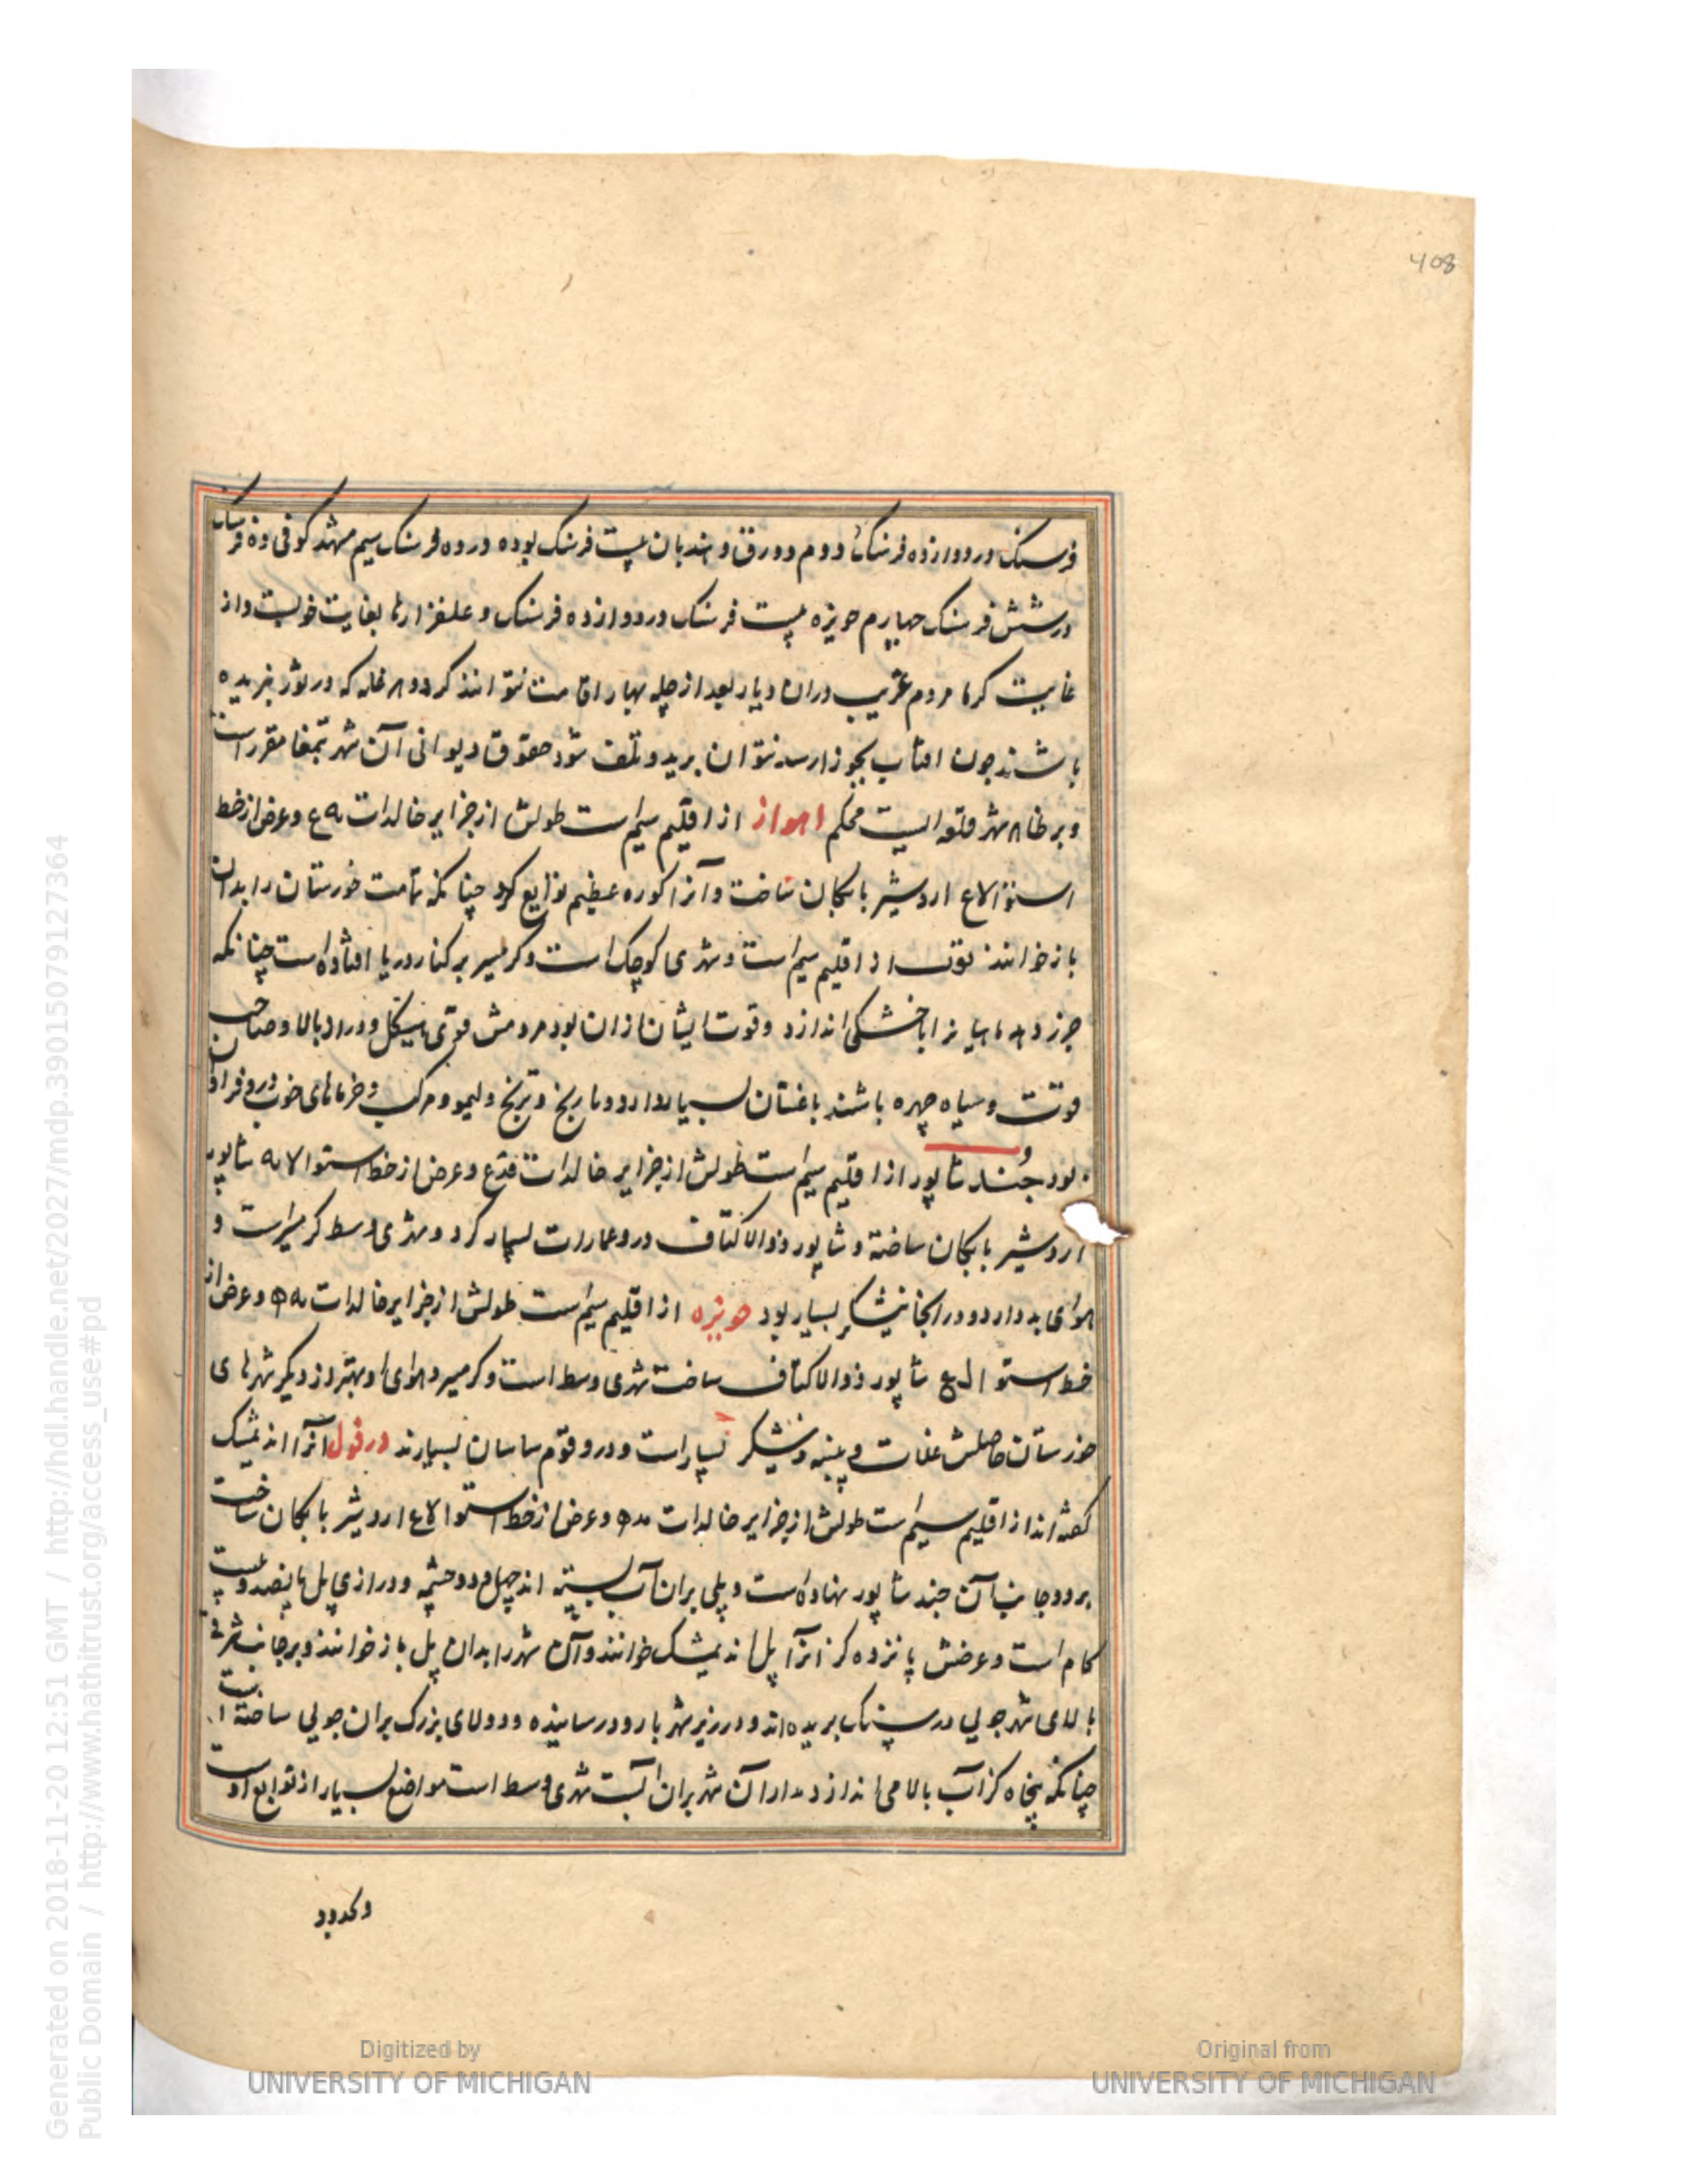 408
فرسنک در دوازده فرسنک دوم دورق و هندیان بیست فرسنک بوده در ده فرسنک سیم مشهد کوفی ده فرسنک
در شش فرسنک چهارم حویزه بیست فرسنک در دوازده فرسنک و علفزارها بغایت خوبست و از
غایت کرما مردم غریب دران دیار بعد از چله بهار اقامت نتوانند کرد و هر غله که در ثور بریده
باشند چون افتاب بجوزا رسد نتوان برید و تلف شود حقوق دیوانی آن شهر بتمغا مقرر است
و بر ظاهر شهر قلعه ایست محکم اهواز از اقلیم سیم است طولش از جزایر خالدات و عرض از خط
استوا اردشیر بابکان ساخت و آنرا کوره عظیم توابع کرد چنانکه تمامت خوزستان را بدان
باز خوانند از اقلیم سیم است و شهری کوچک است و کرمسیر بر کنار دریا افتاده است چنانکه
جزر و مد ماهیانرا با خشکی اندازد و قوت ایشان ازان بود مردمش قوی هیکل و دراز بالا و صاحب
قوت و سیاه چهره باشند باغستان بسیار دارد و نارنج و ترنج و لیمو و مرکب و خرماهای خوب درو فراوان
بود جُند شاپور از اقلیم سیم است طولش از جزایر خالدات و عرض از خط استوا شاپور
اردشیر بابکان ساخته و شاپور ذوالاکتاف درو عمارات بسیار کرد و شهری وسط کرمسیر است و
هوای بد دارد و در انجا نیشکر بسیار بود حویزه از اقلیم سیم است طولش از جزایر خالدات و عرض از
خط استوا شاپور ذوالاکتاف ساخت شهری وسط است و کرمسیر و هوای او بهتر از دیکر شهرهای
خوزستان حاصلش غلات و پنبه و نیشکر بسیار است و درو قوم ساسان بسیارند دزفول آنرا اندیمشک
کفته اند از اقلیم سیم است طولش از جزایر خالدات و عرض از خط استوا اردشیر بابکان ساخت
بر دو جانب آن جند شاپور نهاده است و پلی بران آب بسته اند چهل و دو چشمه و درازی پل پانصد و بیست
کام است و عرضش پانزده کز انرا پل اندیمشک خوانند و آن شهر را بدان پل باز خوانند و بر جانب شرقی
بالای شهر جویی در سنک بریده اند و در زیر شهر با رود رسانیده و دولای بزرک بران جویی ساخته است
چنانکه پنجاه کز آب بالا می اندازد و مدار آن شهر بران آبست شهری وسط است مواضع بسیار از توابع اوست
وحدود
Generated on 2018-11-20 12:51 GMT / http://hdl.handle.net/2027/mdp.39015079127364
Public Domain / http://www.hathitrust.org/access_use#pd
Digitized by
UNIVERSITY OF MICHIGAN
Original from
UNIVERSITY OF MICHIGAN